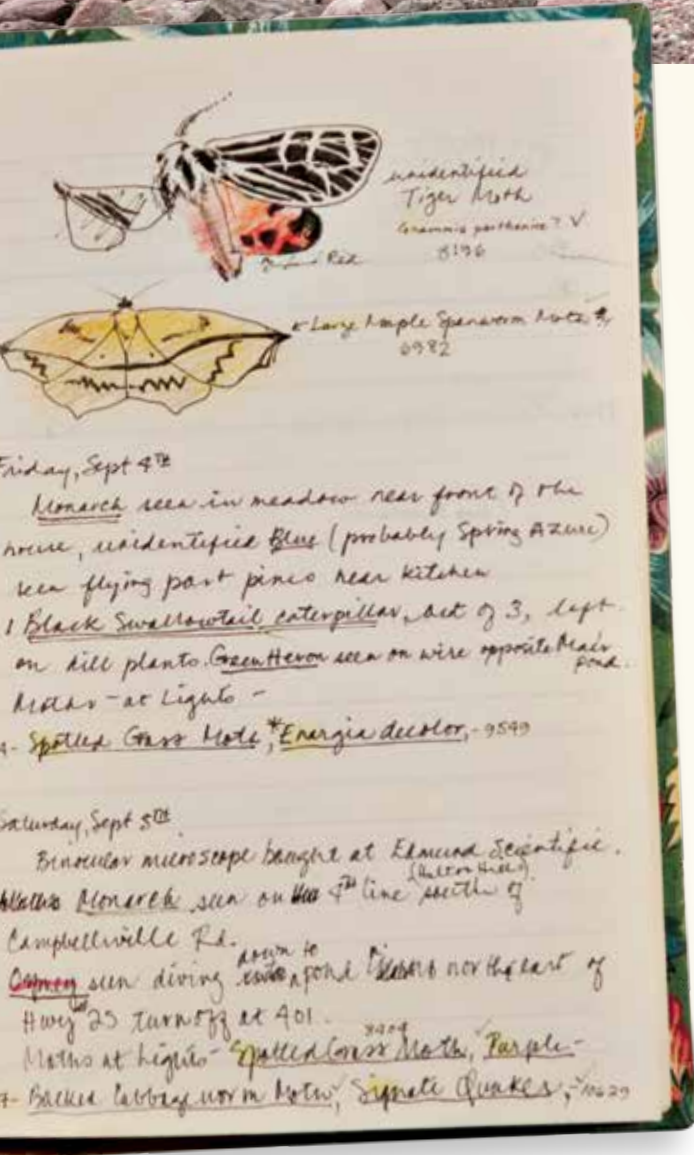 unidentified
Tiger Moth
Grammia parthenice? ✓
8196
Red
← Large Maple Spanworm Moth
6982
Friday, Sept 4TH
Monarch seen in meadow near front of the
house, unidentified Blue (probably Spring Azure)
seen flying past pines near kitchen
1 Black Swallowtail caterpillar, out of 3, left
on dill plants. Green Heron seen on wire opposite Main
pond.
Moths - at Lights -
Spotted Grass Moth,* Enargia decolor, - 9549
Saturday, Sept 5TH
Binocular microscope bought at Edmund Scientific.
(Halton Hills)
Monarch seen on 4TH line south of
Campbellville Rd.
down to
Osprey seen diving pond northeast of
Hwy 25 turnoff at 401.
8404
Moths at Lights - Spotted Grass Moth, Purple-
Backed Cabbageworm Moth, Signate Quaker, - 10629